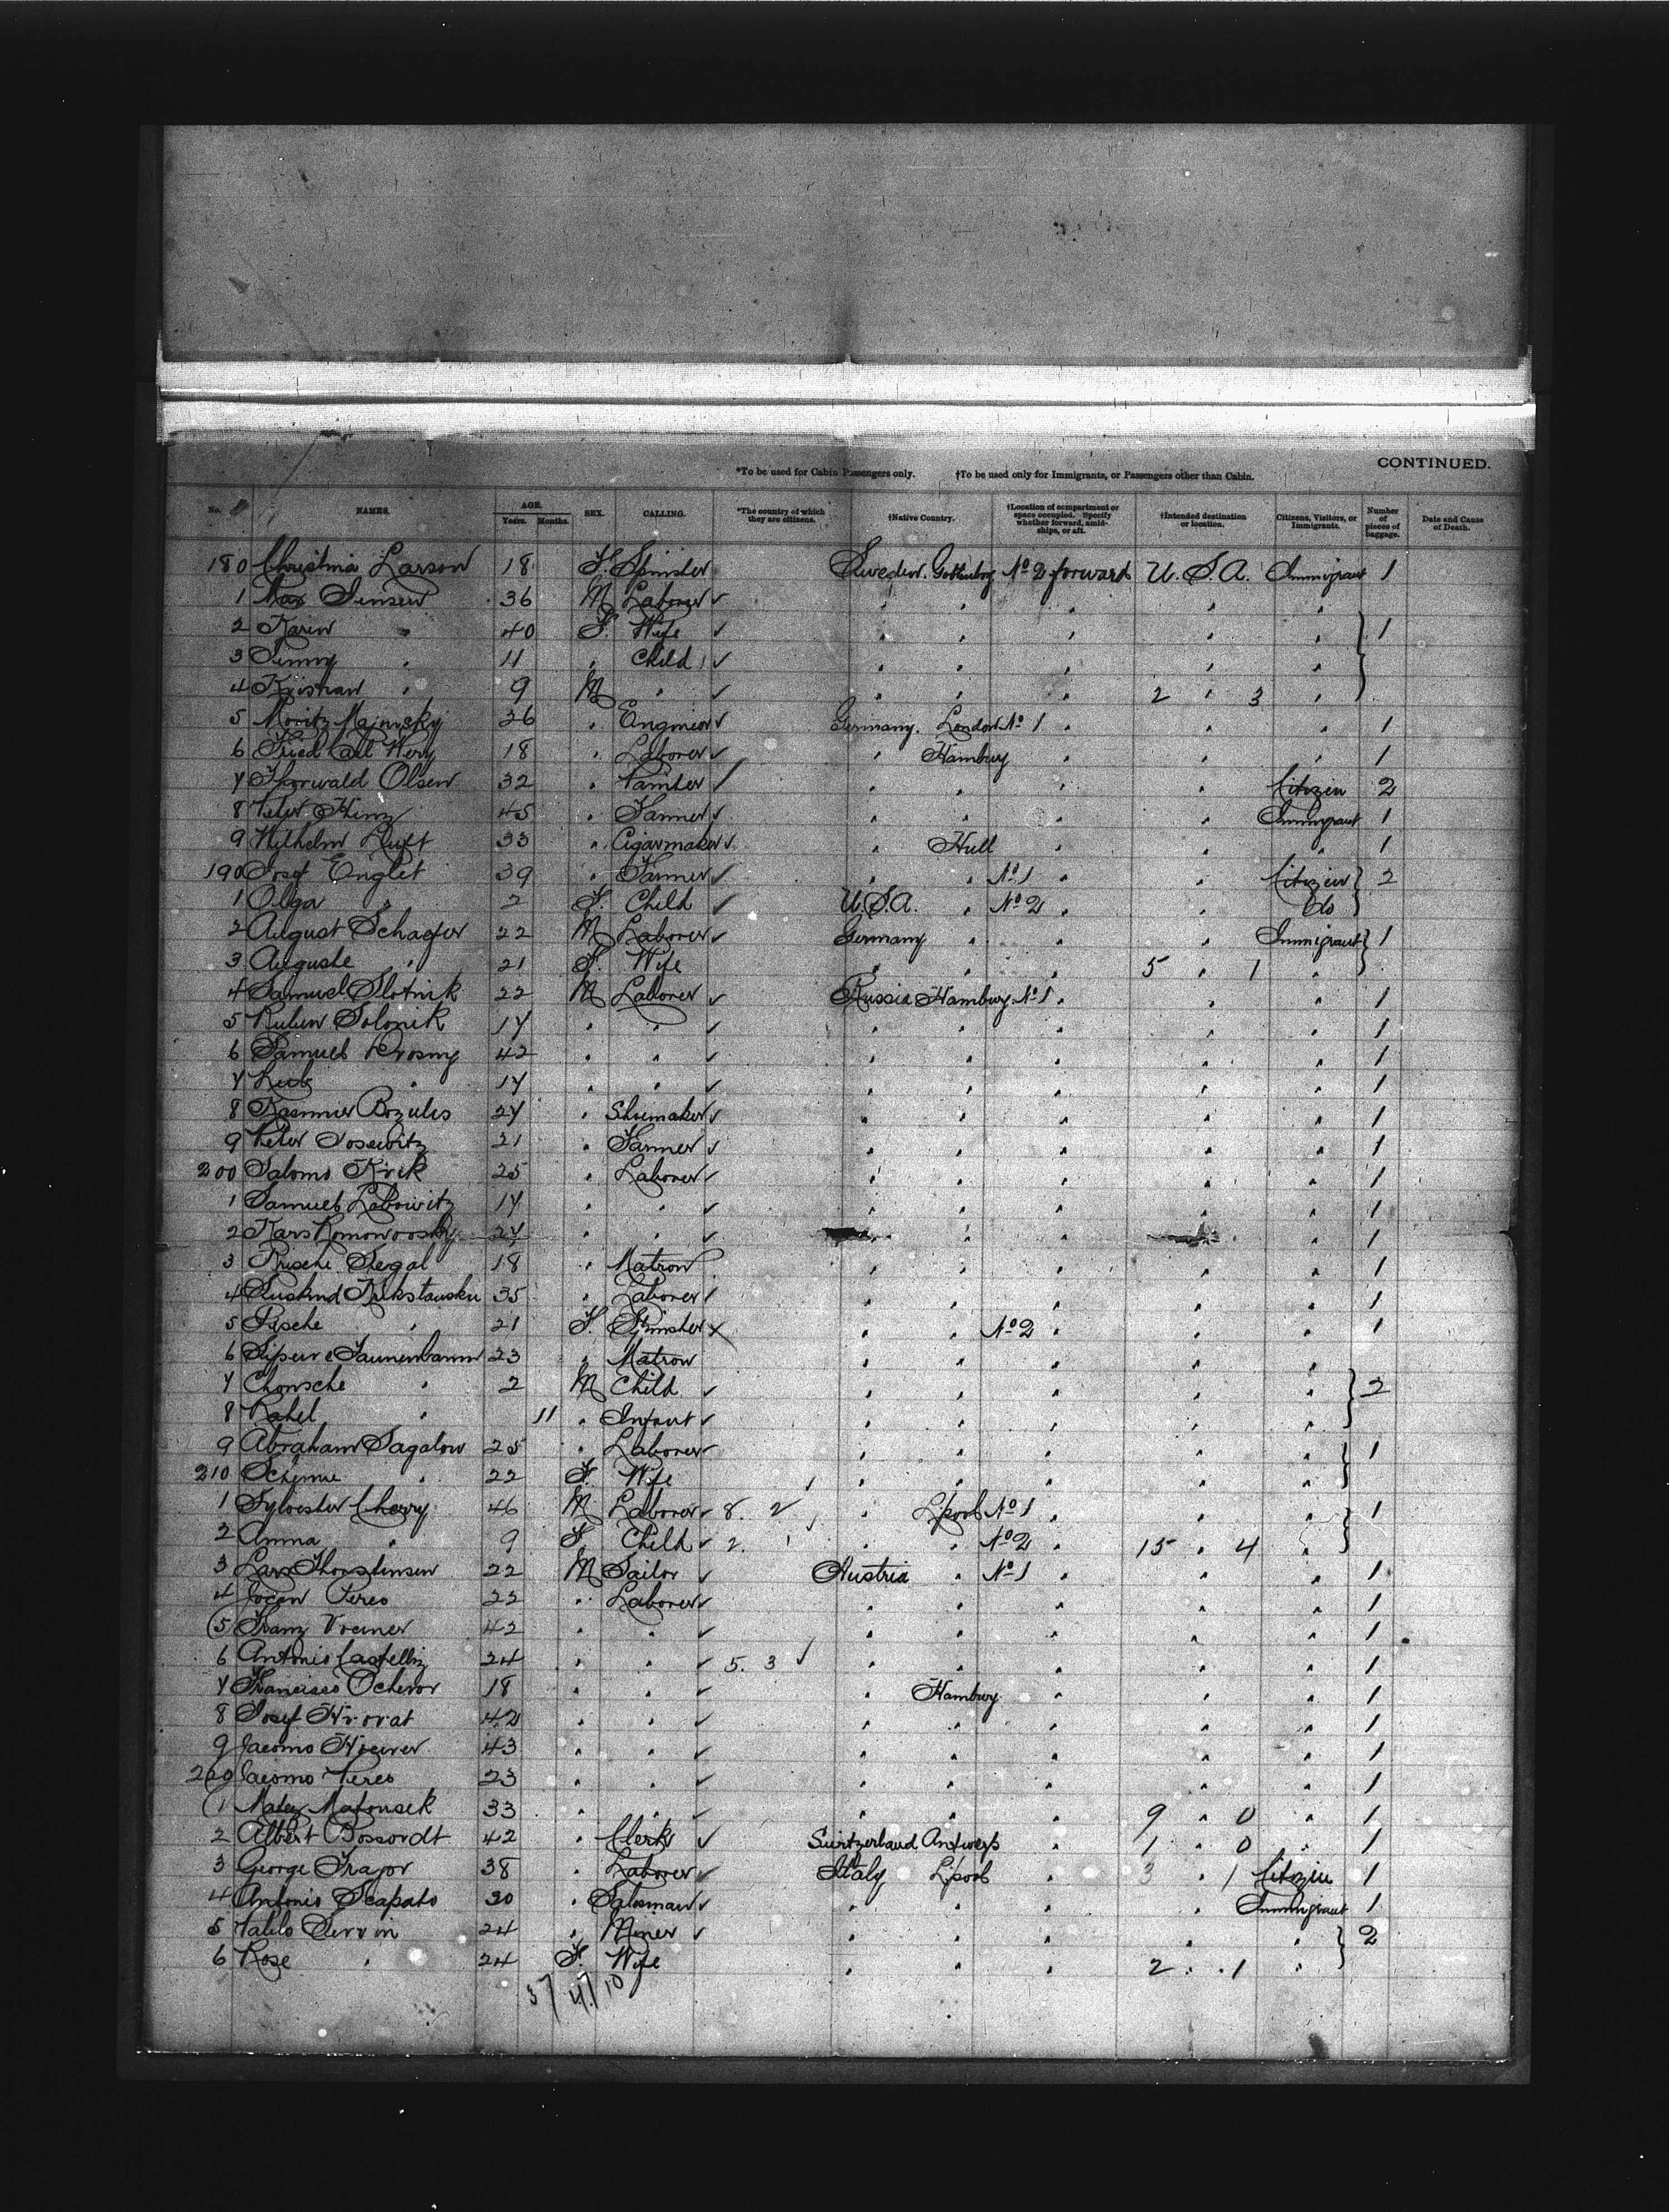 CONTINUED.
*To be used for Cabin Passengers only. †To be used only for Immigrants, or Passengers other than Cabin.
No. NAMES. AGE. Years. Months. SEX. CALLING. *The country of which they are citizens. †Native Country. †Location of compartment or space occupied. Specify whether forward, amidships, or aft. †Intended destination or location. Citizens, Visitors, or Immigrants. Number of pieces of baggage. Date and Cause of Death.
180 Christina Larson 18 F. Spinster Sweden. Gottenborg No 2 forward U.S.A. Immigrant 1
1 Max Jensen 36 M Laborer " " " " "
2 Karen " 40 F. Wife " " " " " 1
3 Jenny " 11 " Child " " " " "
4 Kristian " 9 M " " " " 2 " 3 "
5 Moritz 26 " Engineer Germany. London No 1 " " " 1
6 Fried Carl Wery 18 " Laborer " Hamburg " " " 1
7 Thorwald Olsen 32 " Painter " " " " Citizen 2
8 Peter 45 " Farmer " " " " Immigrant 1
9 Wilhelm Luft 33 " Cigarmaker " Hull " " " 1
190 Josef Englet 39 " Farmer " " No 1 " " Citizen 2
1 Olga " 2 F. Child U.S.A. " No 2 " " Do
2 August Schaefer 22 M Laborer Germany " " " Immigrant 1
3 Auguste " 21 F. Wife " " " 5 " 1 "
4 Samuel Slotnik 22 M Laborer Russia Hamburg No 1 " " " 1
5 Ruben Solonik 17 " " " " " " " 1
6 Samuel 42 " " " " " " " 1
7 Leib " 17 " " " " " " " 1
8 Kasimier Bozulis 27 " Shoemaker " " " " " 1
9 Peter Josewitz 21 " Farmer " " " " " 1
200 Salomo Krik 25 " Laborer " " " " " 1
1 Samuel Labowitz 17 " " " " " " " 1
2 27 " " " " " " 1
3 Rische Segal 18 " Matron " " " " " 1
4 35 " Laborer " " " " " 1
5 Pesche " 21 F. Spinster " " No 2 " " " 1
6 23 " Matron " " " " "
7 Chonsche " 2 M Child " " " " " 2
8 Rahel " 11 " Infant " " " " "
9 Abraham Sagalow 25 " Laborer " " " " " 1
210 " 22 F. Wife " " " " "
1 Sylvester Cherry 46 M Laborer 8. 2 " L'pool No 1 " " " 1
2 Anna " 9 F Child 2. 1 " " No 2 " 15 " 4 "
3 Lars Thorstensen 22 M Sailor Austria " No 1 " " " 1
4 Peres 22 " Laborer " " " " " 1
5 Franz 42 " " " " " " " 1
6 Antonio 24 " " 5. 3 " " " " " 1
7 Francisco 18 " " " Hamburg " " " 1
8 Josef Hrovat 42 " " " " " " " 1
9 Jacomo 43 " " " " " " " 1
220 Jacomo Peres 23 " " " " " " " 1
1 Matousek 33 " " " " " 9 " 0 " 1
2 Albert Bossordt 42 " Clerk Switzerland Antwerp " 1 " 0 " 1
3 George 38 " Laborer Italy L'pool " 3 " 1 Citizen 1
4 Antonio Scapato 30 " Salesman " " " " Immigrant 1
5 24 " Miner " " " " " 2
6 Rose " 24 F. Wife " " " 2 " 1 "
37/47/10